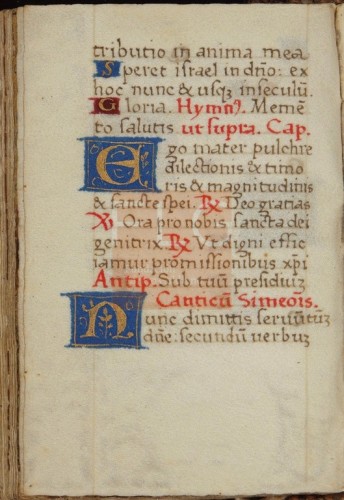 tributio in anima mea
Speret israel in dño: ex
hoc nunc & usq; in seculũ.
Gloria. Hymnꝰ. Memẽ
to salutis ut supra. Cap.
Ego mater pulchre
dilectionis & timo
ris & magnitudinis
& sancte spei. ℟ Deo gratias
℣ Ora pro nobis sancta dei
genitrix ℟ Ut digni effic
iamur promissionibus xp̃i
Antip. Sub tuũ presidiuz
Canticũ Simeois.
Nunc dimittis seruũ tuz
dñe: secundũ verbuz